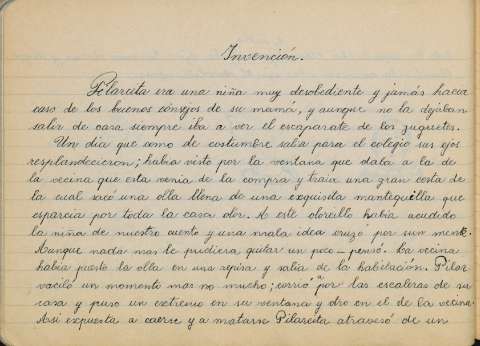 Invención.
Pilarcita era una niña muy desobediente y jamás hacia
caso de los buenos consejos de su mamá, y aunque no la dejaban
salir de casa siempre iba a ver el escaparate de los juguetes.
Un dia que como de costumbre salia para el colegio sus ojos
resplandecieron; habia visto por la ventana que daba a la de
la vecina que esta venia de la compra y traia una gran cesta de
la cual sacó una olla llena de una exquisita mantequilla que
esparcia por toda la casa olor. A este olorcillo habia acudido
la niña de nuestro cuento y una mala idea cruzó por su mente.
Aunque nada mas le pudiera quitar un poco — pensó. La vecina
habia puesto la olla en una repisa y salia de la habitación. Pilar
vaciló un momento mas no mucho; corrió por las escaleras de su
casa y puso un extremo en su ventana y otro en el de la vecina.
Asi expuesta a caerse y a matarse Pilarcita atravesó de un